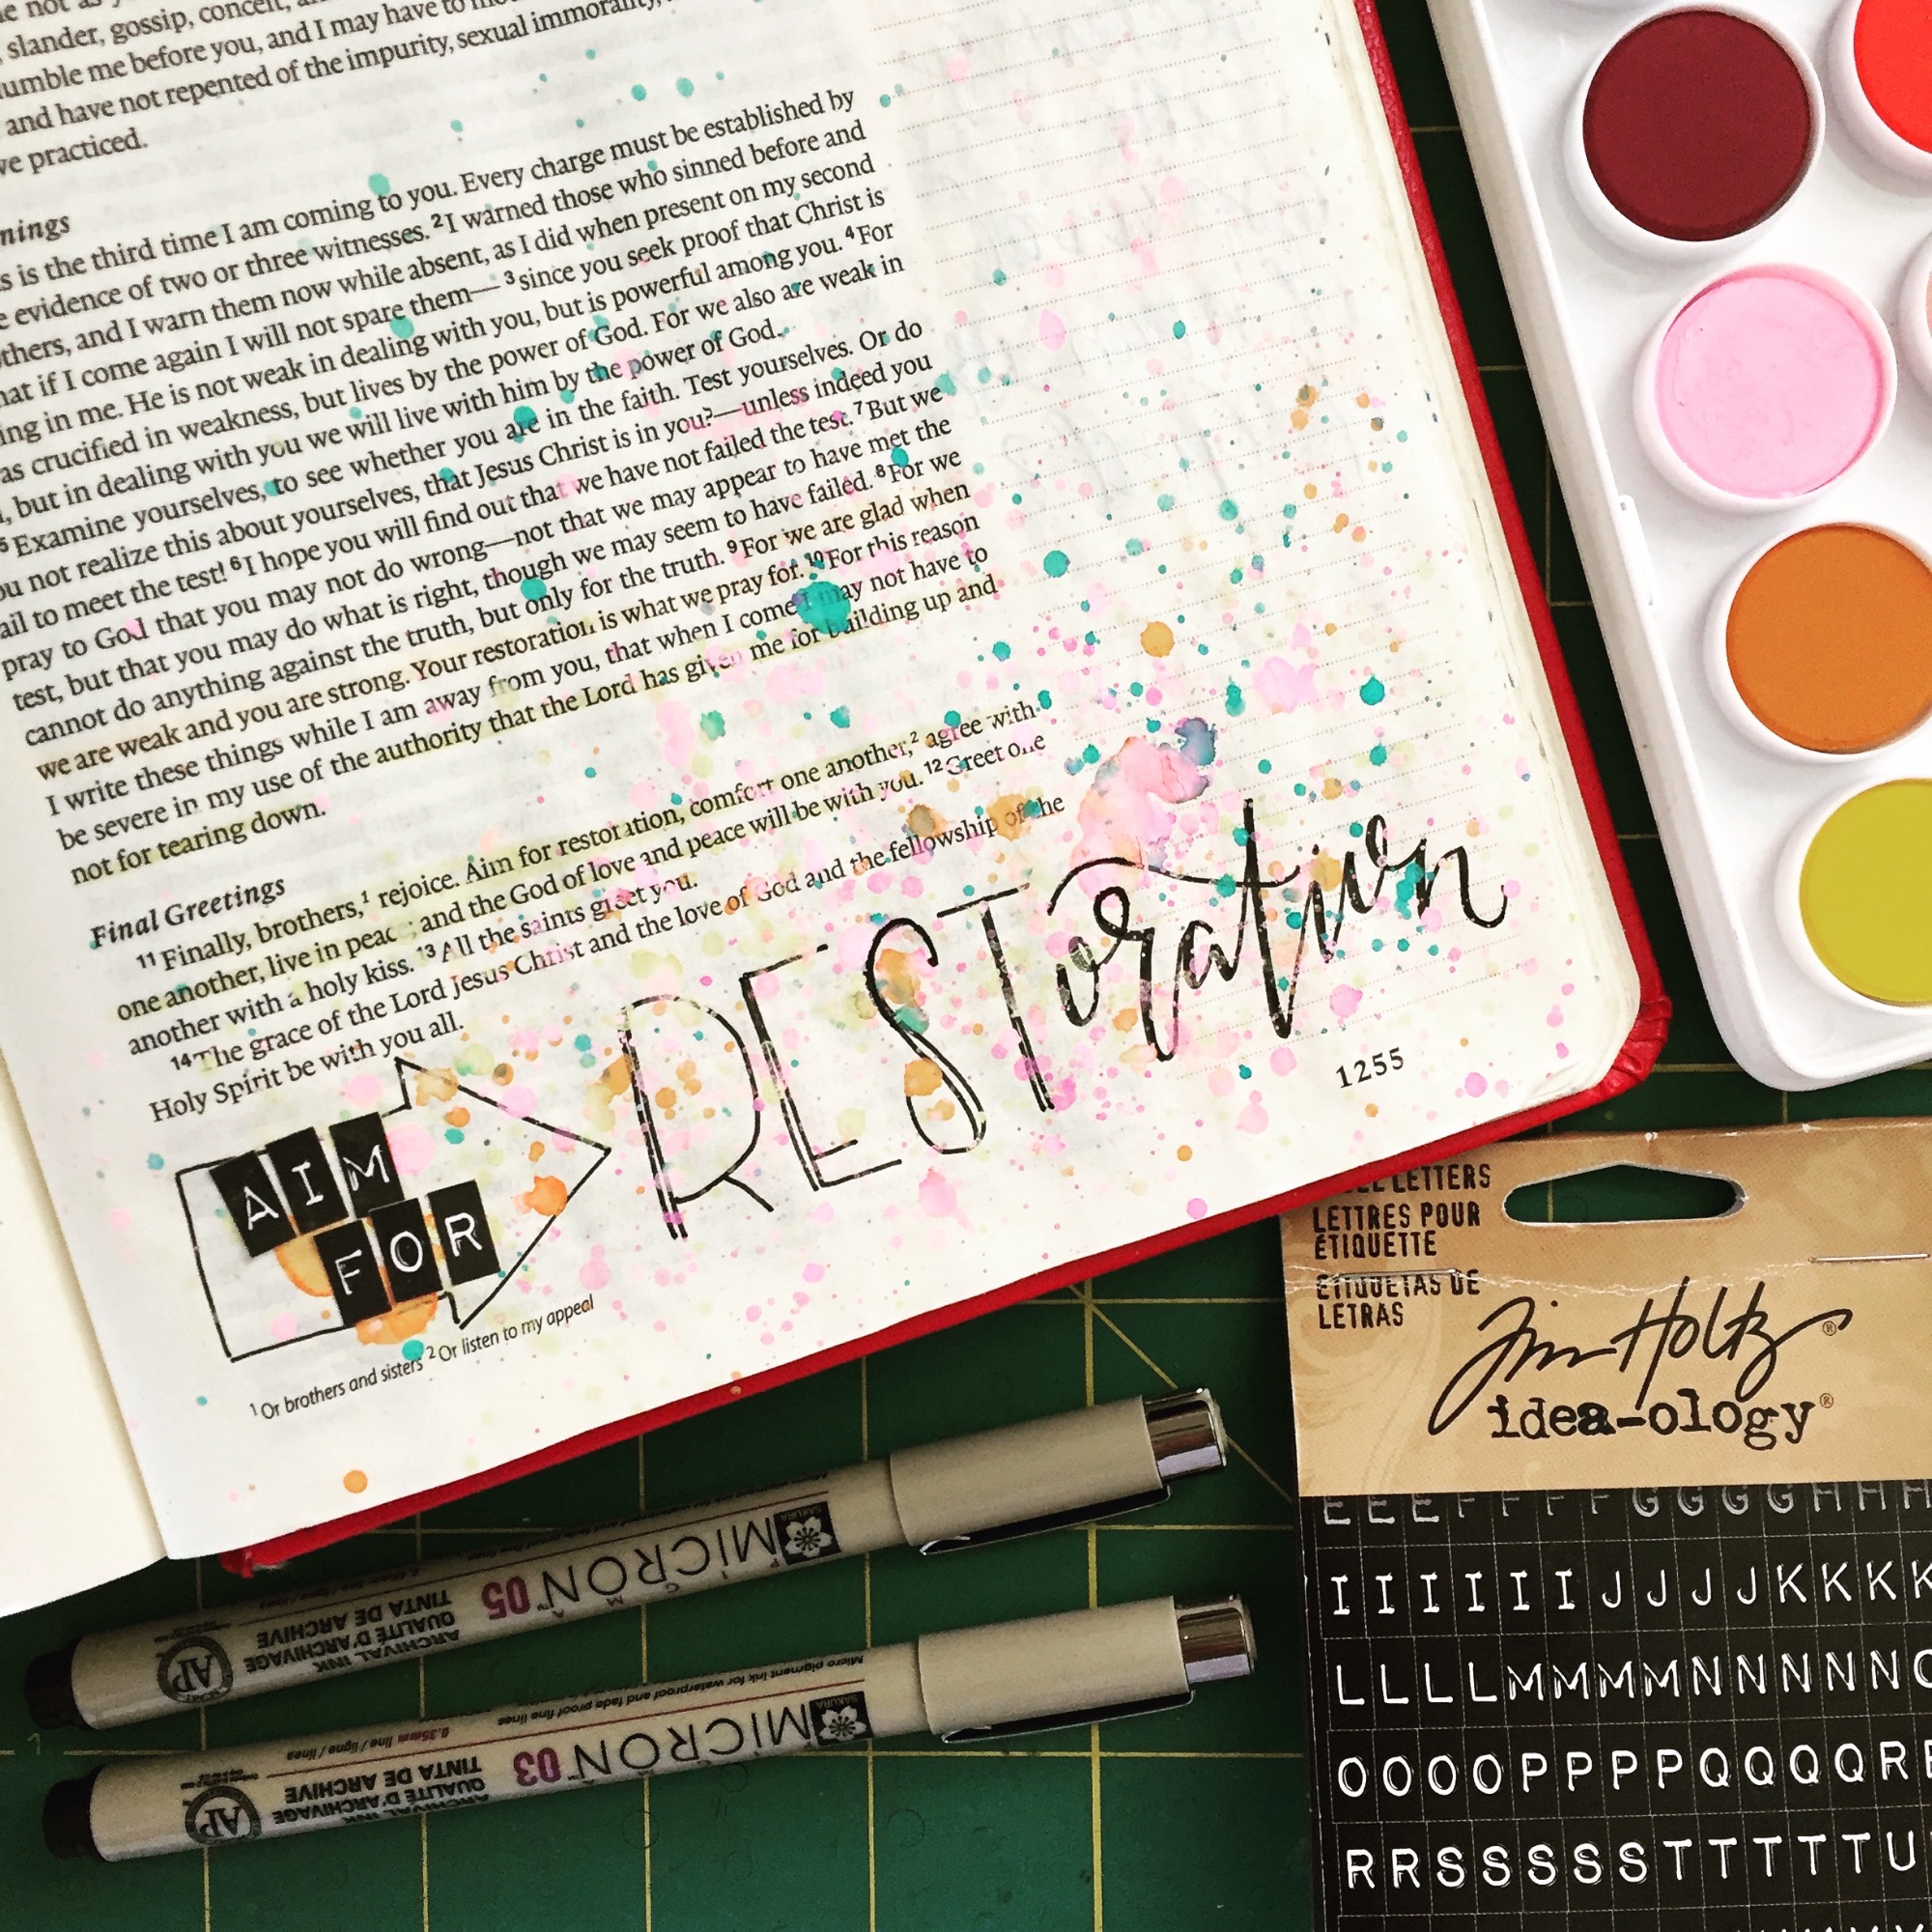 slander, gossip, conceit,
humble me before you, and I may have to
and have not repented of the impurity, sexual immorality,
practiced.
is the third time I am coming to you. Every charge must be established by
evidence of two or three witnesses. 2 I warned those who sinned before and
and I warn them now while absent, as I did when present on my second
if I come again I will not spare them— 3 since you seek proof that Christ is
in me. He is not weak in dealing with you, but is powerful among you. 4 For
crucified in weakness, but lives by the power of God. For we also are weak in
but in dealing with you we will live with him by the power of God.
5 Examine yourselves, to see whether you are in the faith. Test yourselves. Or do
you not realize this about yourselves, that Jesus Christ is in you?—unless indeed you
fail to meet the test! 6 I hope you will find out that we have not failed the test. 7 But we
pray to God that you may not do wrong—not that we may appear to have met the
test, but that you may do what is right, though we may seem to have failed. 8 For we
cannot do anything against the truth, but only for the truth. 9 For we are glad when
we are weak and you are strong. Your restoration is what we pray for. 10 For this reason
I write these things while I am away from you, that when I come I may not have to
be severe in my use of the authority that the Lord has given me for building up and
not for tearing down.
Final Greetings
11 Finally, brothers,1 rejoice. Aim for restoration, comfort one another,2 agree with
one another, live in peace; and the God of love and peace will be with you. 12 Greet one
another with a holy kiss. 13 All the saints greet you.
14 The grace of the Lord Jesus Christ and the love of God and the fellowship of the
Holy Spirit be with you all.
AIM
FOR
RESToration
1255
1 Or brothers and sisters 2 Or listen to my appeal
LETTERS
LETTRES POUR
ÉTIQUETTE
ETIQUETAS DE
LETRAS
Tim Holtz®
idea-ology®
E E E F F F F G G G G H H H
I I I I I I J J J J K K K K
L L L L M M M M N N N N N
O O O O P P P P Q Q Q Q R
R R S S S S S T T T T T U
SAKURA
MICRON™ 05
ARCHIVAL INK
QUALITÉ D'ARCHIVAGE
TINTA DE ARCHIVE
AP
SAKURA
Micro pigment ink for waterproof and fade proof fine lines
MICRON™ 03
0.35mm line / ligne / línea
ARCHIVAL INK
QUALITÉ D'ARCHIVAGE
TINTA DE ARCHIVE
AP